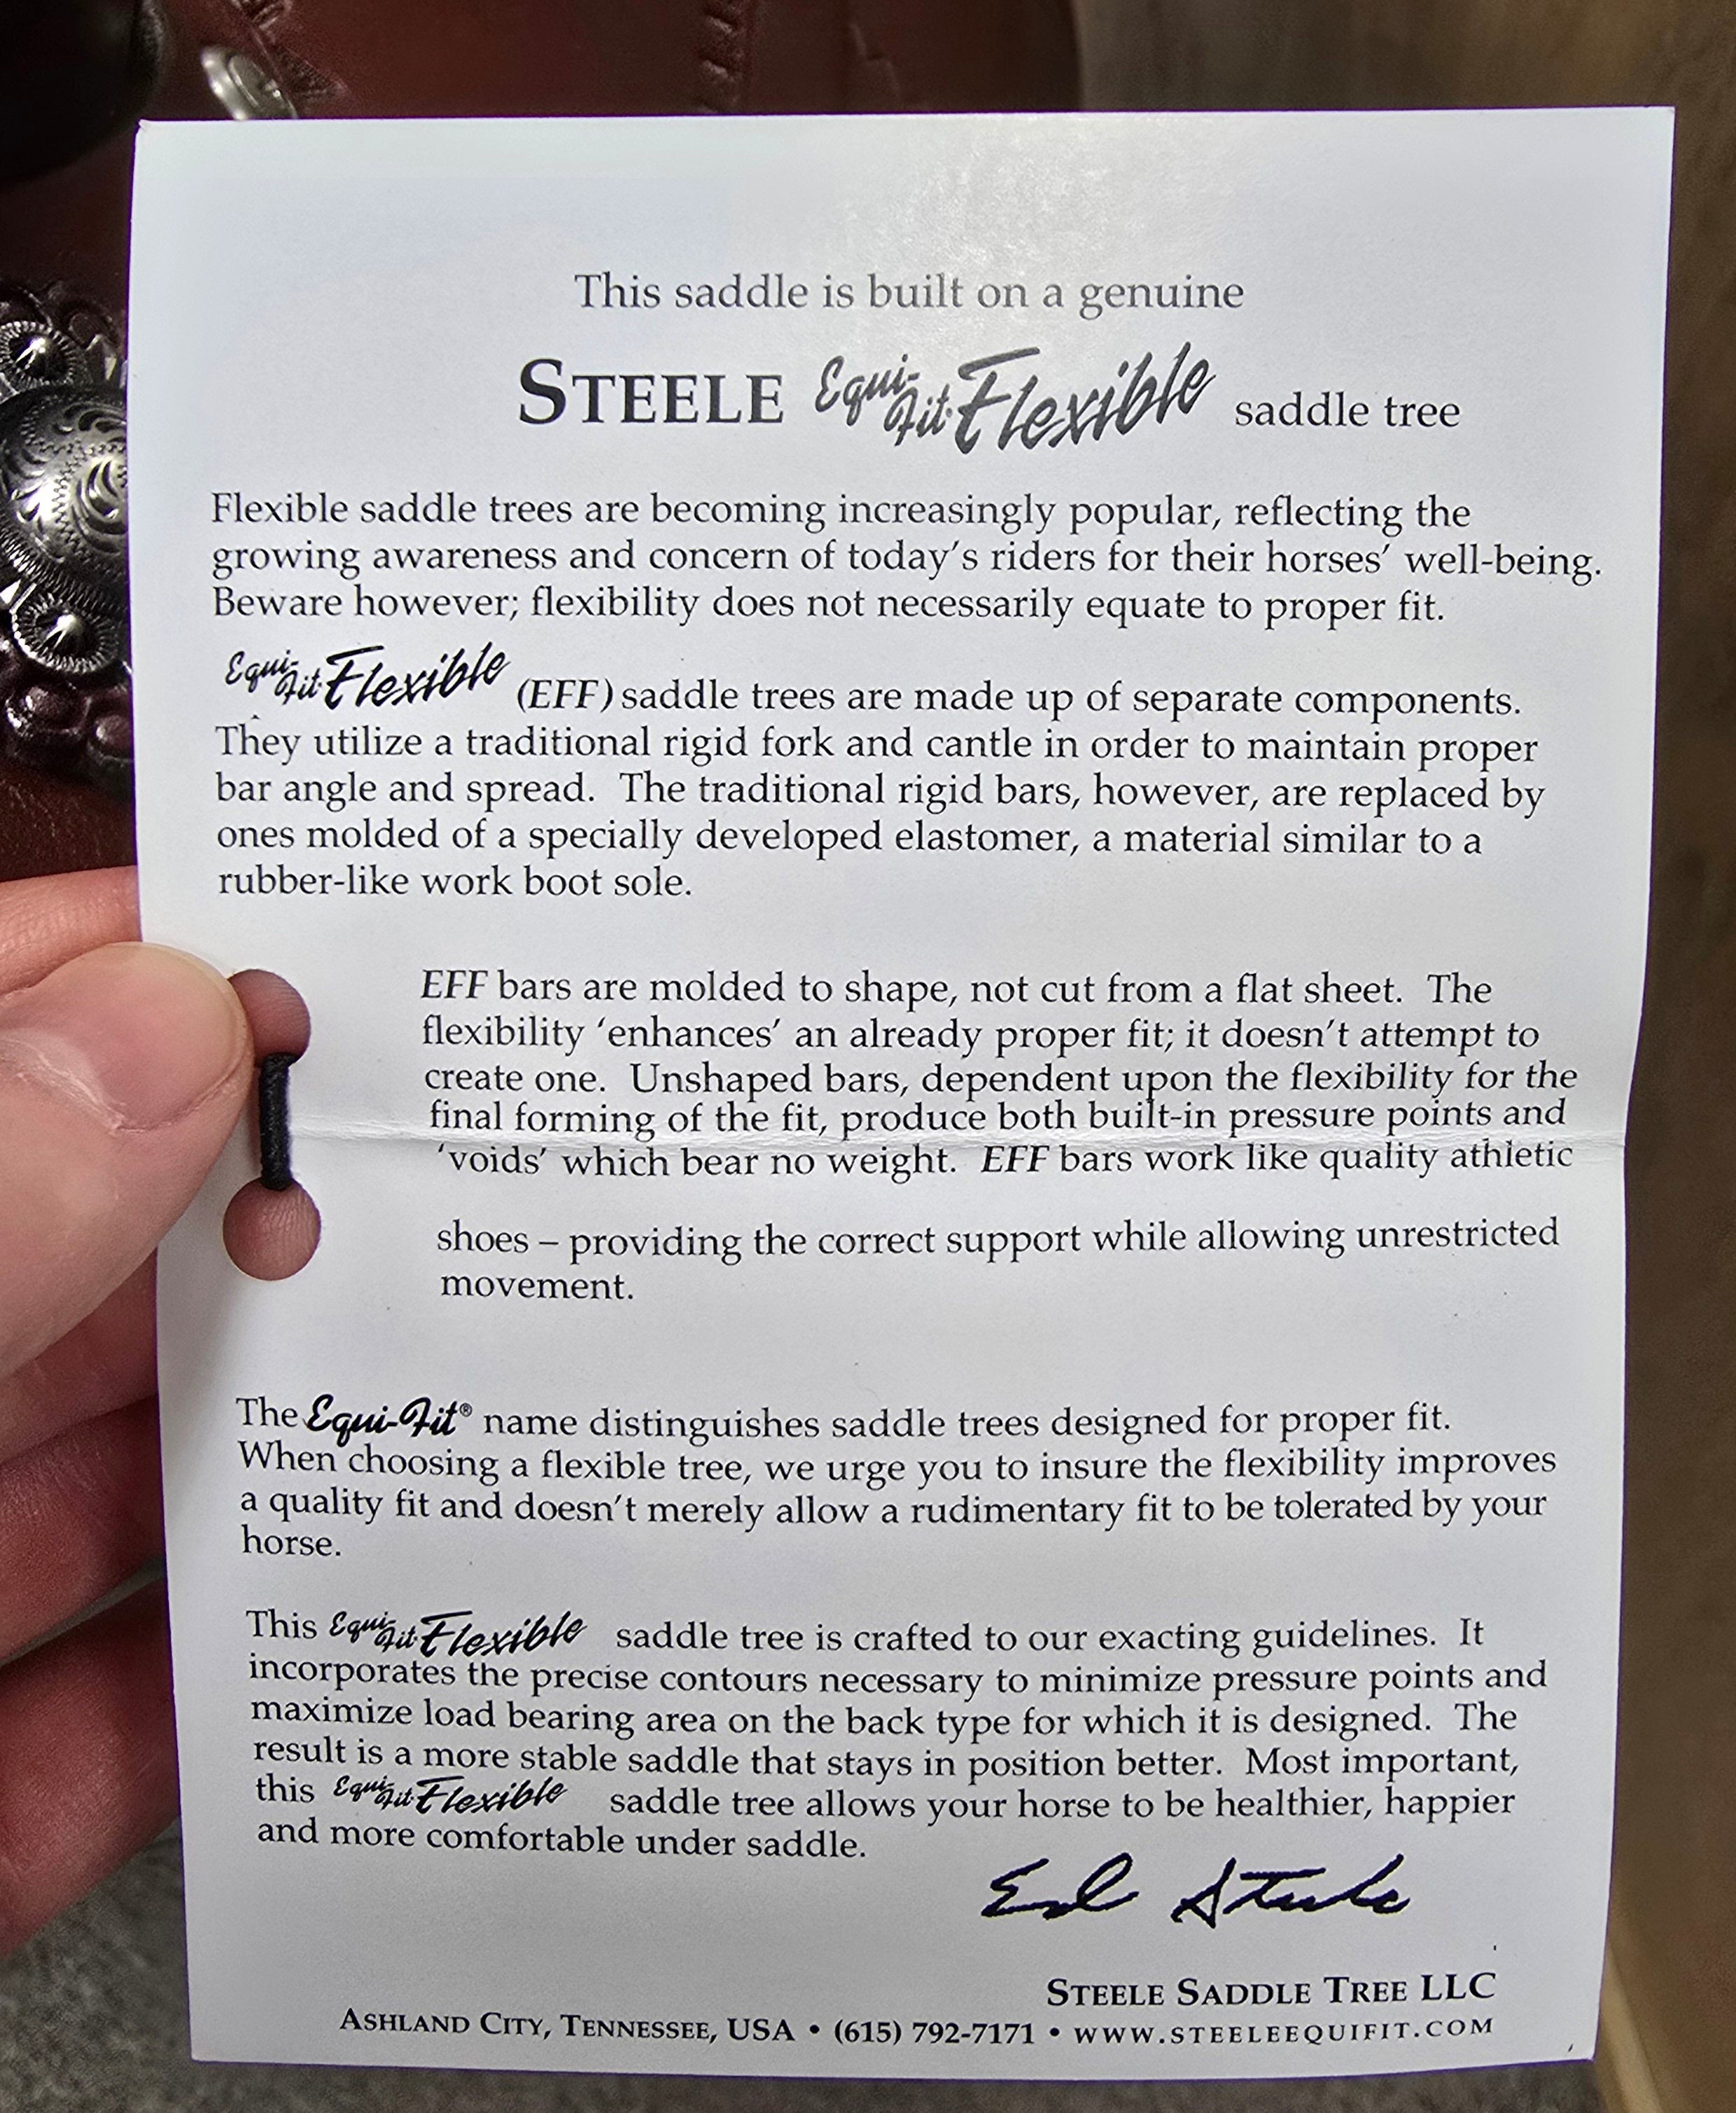 This saddle is built on a genuine
STEELE Equi-Fit Flexible saddle tree
Flexible saddle trees are becoming increasingly popular, reflecting the
growing awareness and concern of today's riders for their horses' well-being.
Beware however; flexibility does not necessarily equate to proper fit.
Equi-Fit Flexible (EFF) saddle trees are made up of separate components.
They utilize a traditional rigid fork and cantle in order to maintain proper
bar angle and spread. The traditional rigid bars, however, are replaced by
ones molded of a specially developed elastomer, a material similar to a
rubber-like work boot sole.
EFF bars are molded to shape, not cut from a flat sheet. The
flexibility 'enhances' an already proper fit; it doesn't attempt to
create one. Unshaped bars, dependent upon the flexibility for the
final forming of the fit, produce both built-in pressure points and
'voids' which bear no weight. EFF bars work like quality athletic
shoes – providing the correct support while allowing unrestricted
movement.
The Equi-Fit® name distinguishes saddle trees designed for proper fit.
When choosing a flexible tree, we urge you to insure the flexibility improves
a quality fit and doesn't merely allow a rudimentary fit to be tolerated by your
horse.
This Equi-Fit Flexible saddle tree is crafted to our exacting guidelines. It
incorporates the precise contours necessary to minimize pressure points and
maximize load bearing area on the back type for which it is designed. The
result is a more stable saddle that stays in position better. Most important,
this Equi-Fit Flexible saddle tree allows your horse to be healthier, happier
and more comfortable under saddle.
Ed Steele
STEELE SADDLE TREE LLC
ASHLAND CITY, TENNESSEE, USA • (615) 792-7171 • WWW.STEELEEQUIFIT.COM